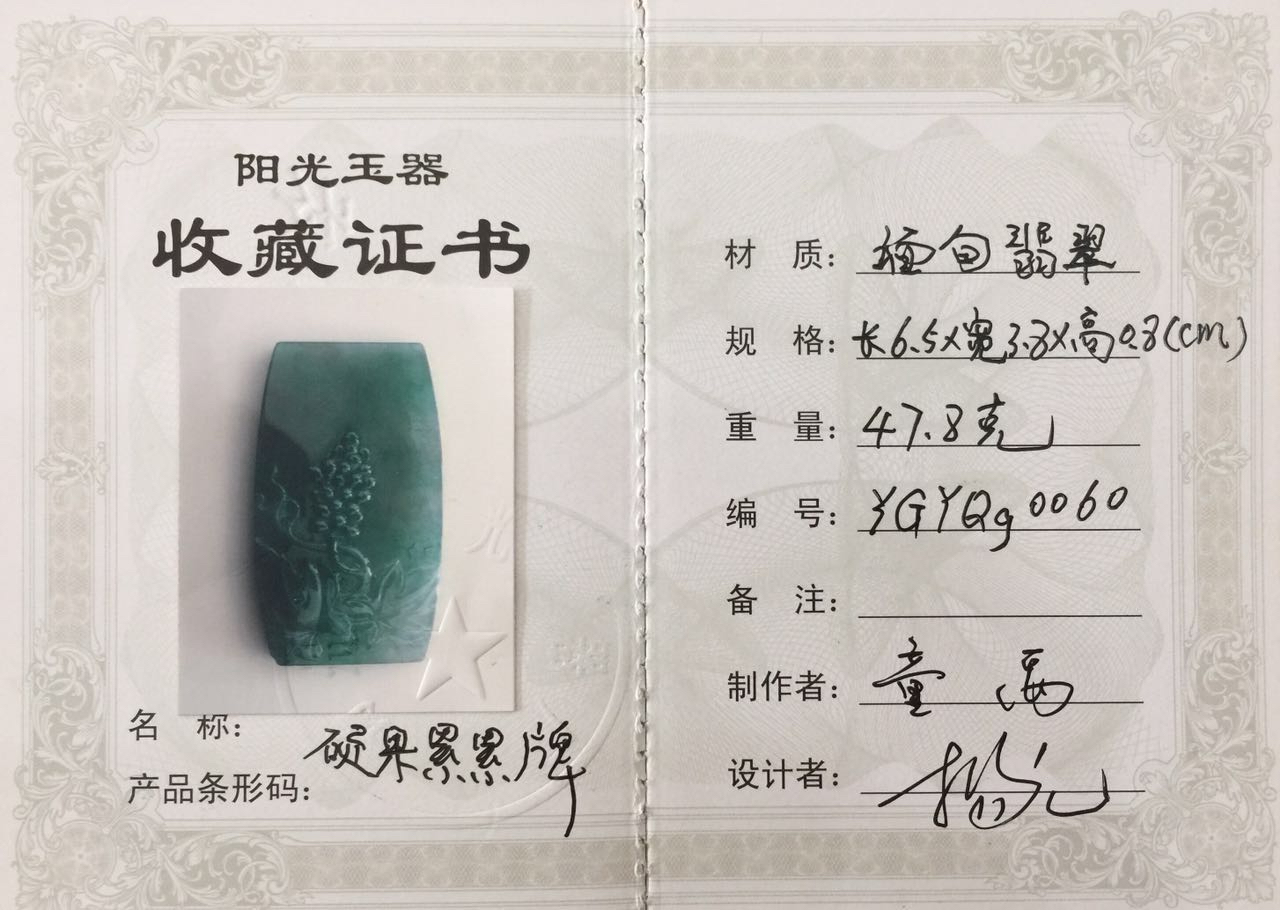 阳光玉器
收藏证书
名 称：硕果累累牌
产品条形码：
材 质：缅甸翡翠
规 格：长6.5X宽3.8X高0.8(cm)
重 量：47.8克
编 号：YGYQg0060
备 注：
制作者：童
设计者：